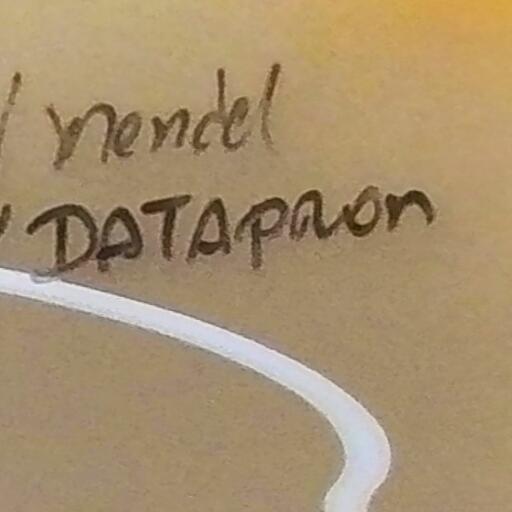 / mendel
/ DATAPRON